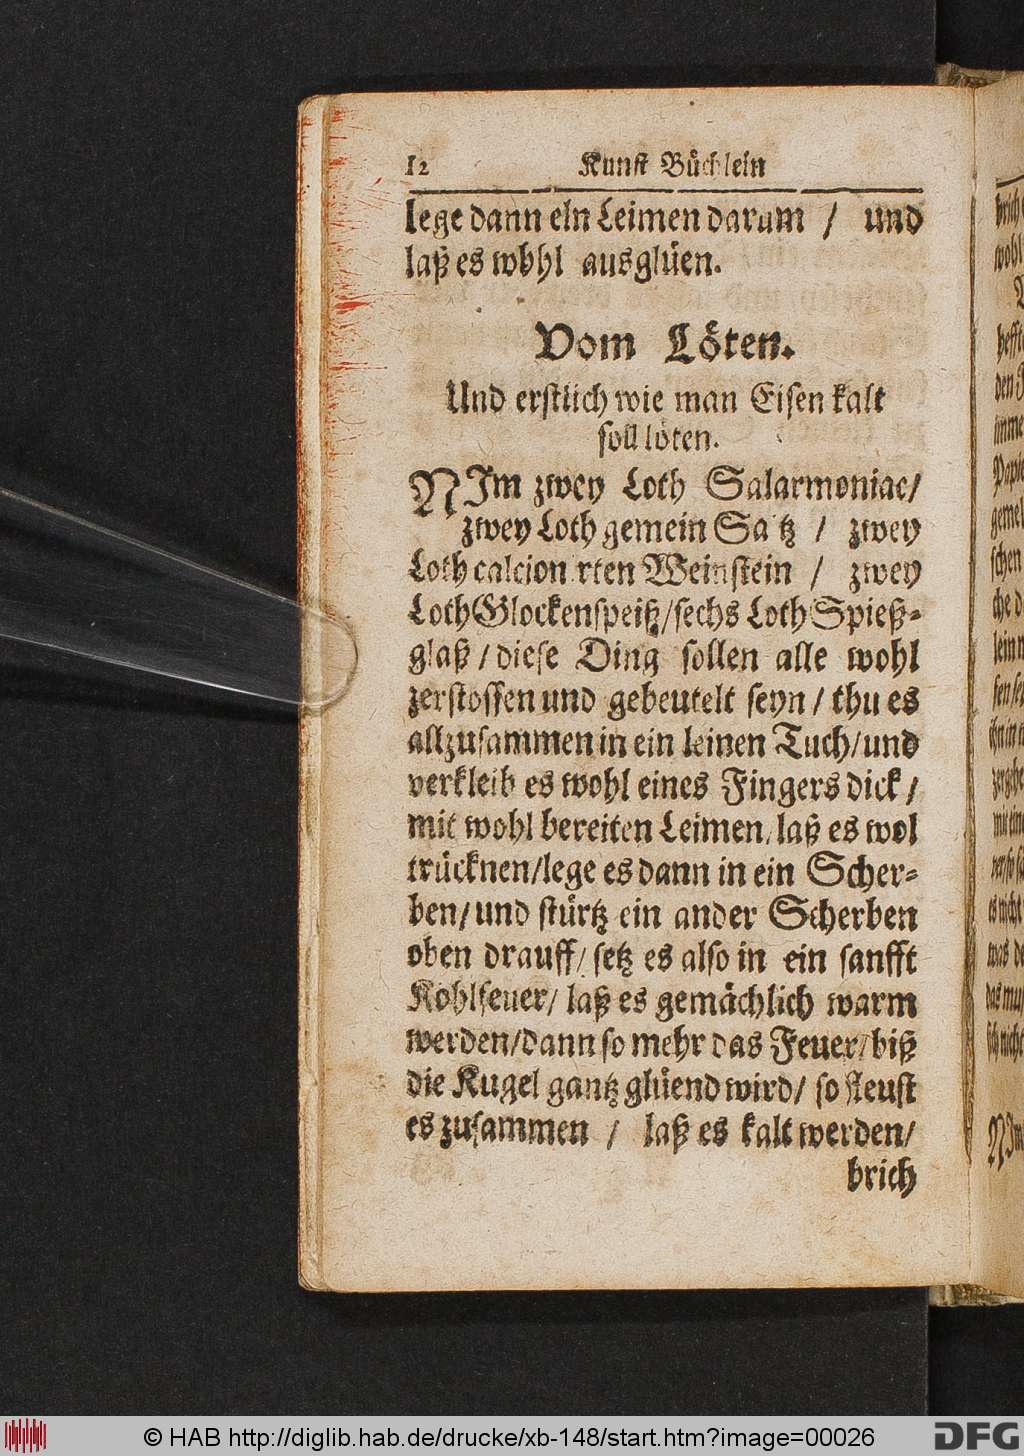 12 Kunst Büchleln
lege dann eln Leimen darum / und
laß es wohl ausglüen.
Vom Löten.
Und erstlich wie man Eisen kalt
soll löten.
NIm zwey Loth Salarmoniac/
zwey Loth gemein Saltz / zwey
Loth calcionirten Weinstein / zwey
Loth Glockenspeiß/sechs Loth Spieß⸗
glaß / diese Ding sollen alle wohl
zerstossen und gebeutelt seyn / thu es
allzusammen in ein leinen Tuch/und
verkleib es wohl eines Fingers dick /
mit wohl bereiten Leimen, laß es wol
trücknen/lege es dann in ein Scher⸗
ben/ und stürtz ein ander Scherben
oben drauff/ setz es also in ein sanfft
Kohlfeuer/ laß es gemächlich warm
werden/dann so mehr das Feuer/biß
die Kugel gantz glüend wird/ so fleust
es zusammen / laß es kalt werden/
brich
© HAB http://diglib.hab.de/drucke/xb-148/start.htm?image=00026
DFG